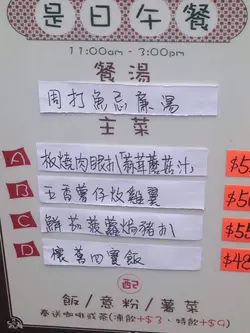 是日午餐
11:00am - 3:00pm
餐湯
周打魚忌廉湯
主菜
A 板燒肉眼扒「蒜茸蘑菇汁」 $5
B 五香薯仔炆雞翼 $5
C 鮮茄菠蘿焗豬扒 $5
D 懷舊四寶飯 $48
配
飯/意粉/薯菜
奉送咖啡或茶(凍飲+$3、特飲+$9)